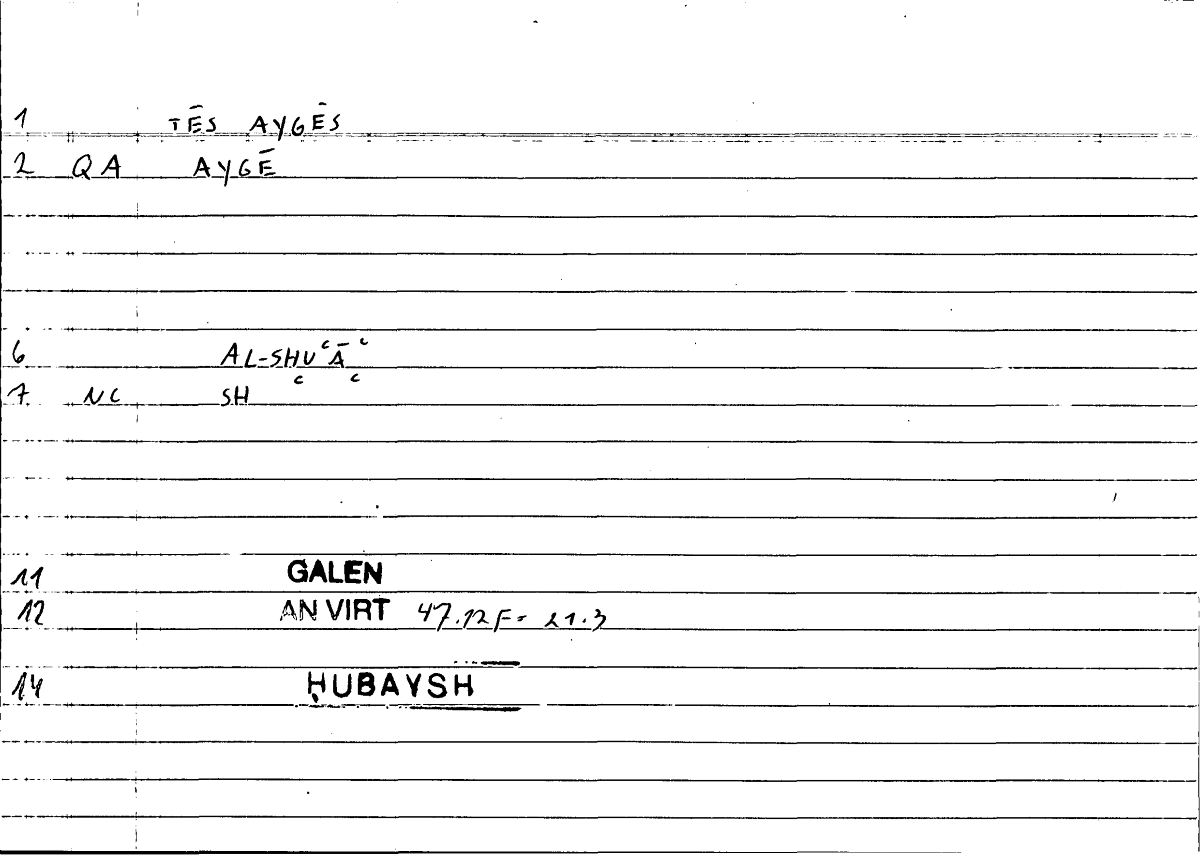 1 TĒS AYGĒS
2 QA AYGĒ
6 AL-SHUʿĀʿ
7 NC SH ʿ ʿ
11 GALEN
12 AN VIRT 47.12F = 21.3
14 ḤUBAYSH